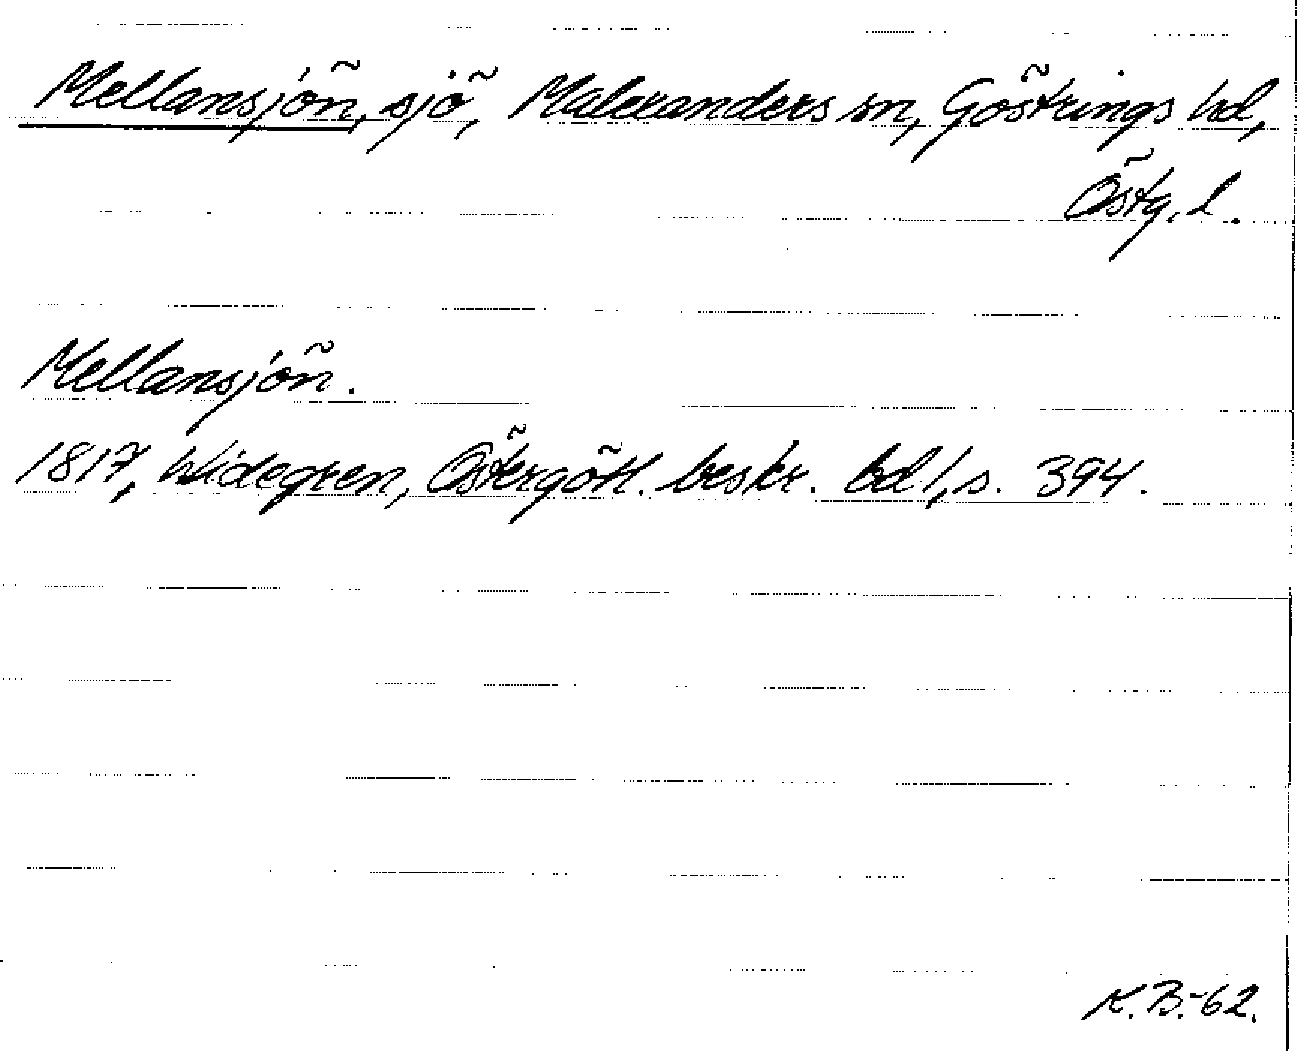 Mellansjön, sjö, Malexanders sn, Göstrings hd,
Östg. l.
Mellansjön.
1817, Widegren, Östergötl. beskr. bd 1, s. 394.
K.B.-62.